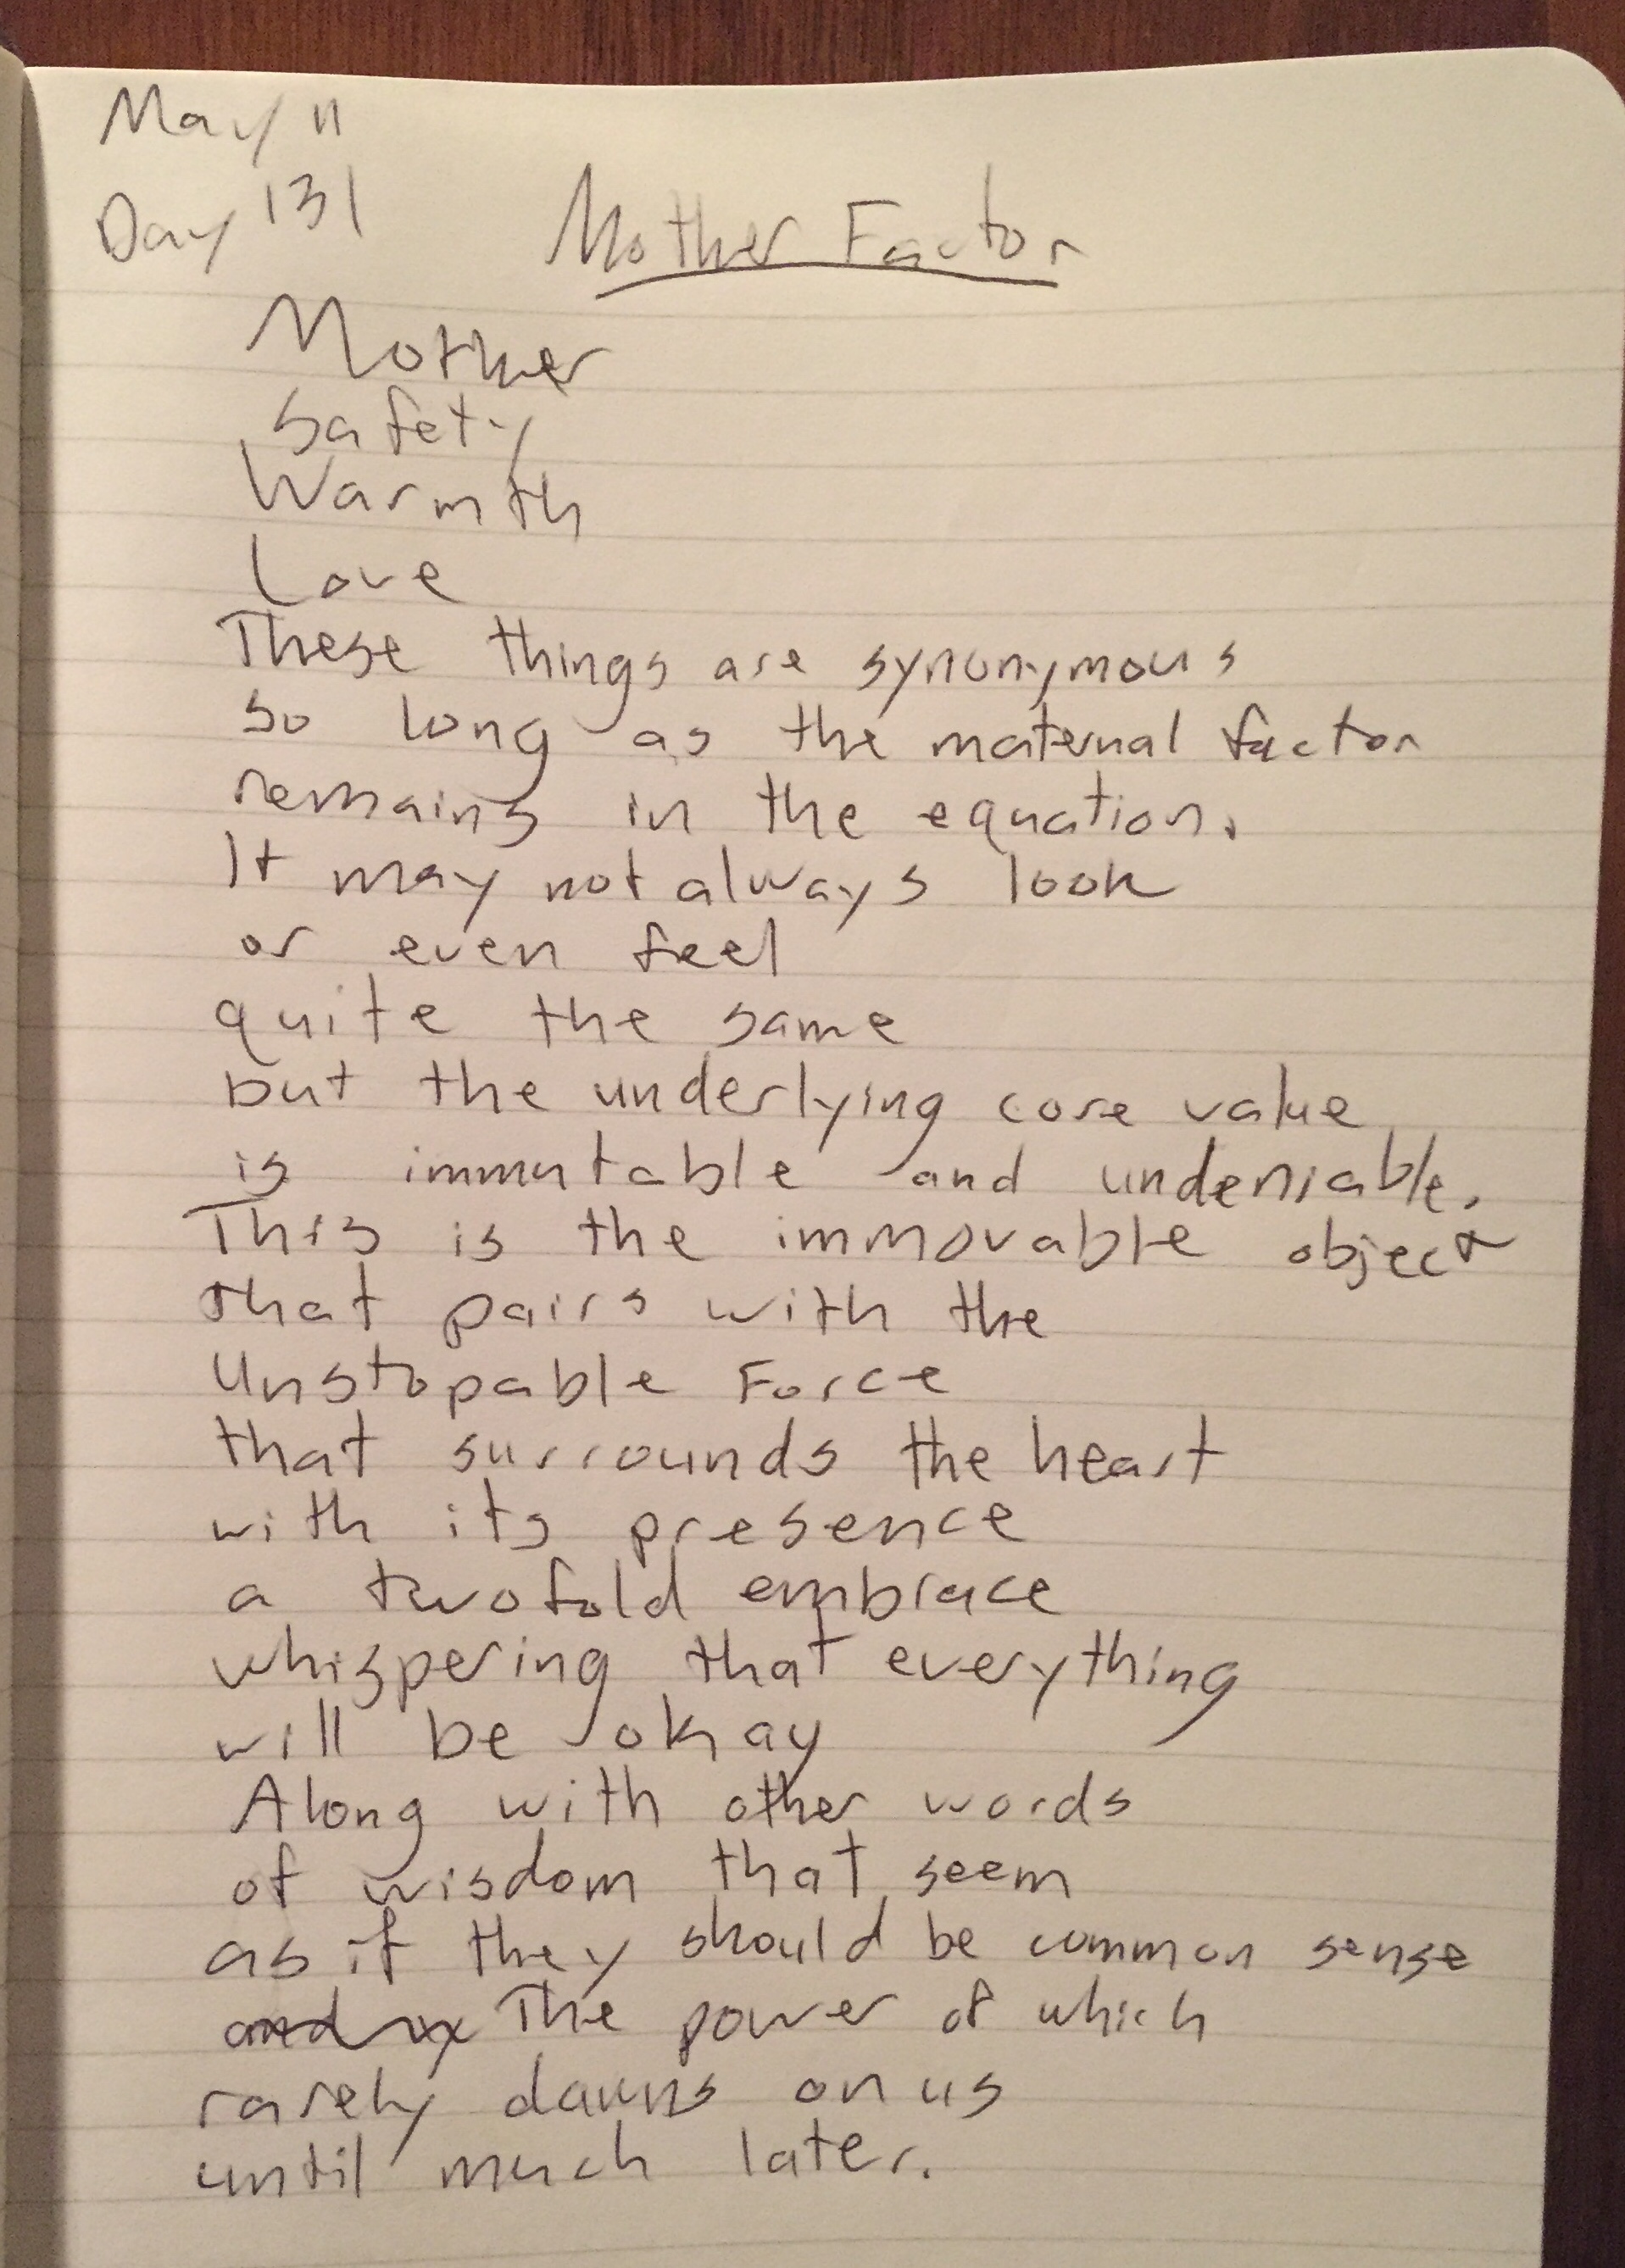 May 11
Day 131
Mother Factor
Mother
Safety
Warmth
Love
These things are synonymous
so long as the maternal factor
remains in the equation.
It may not always look
or even feel
quite the same
but the underlying core value
is immutable and undeniable.
This is the immovable object
that pairs with the
Unstopable Force
that surrounds the heart
with its presence
a twofold embrace
whispering that everything
will be okay
Along with other words
of wisdom that seem
as if they should be common sense
The power of which
rarely dawns on us
until much later.